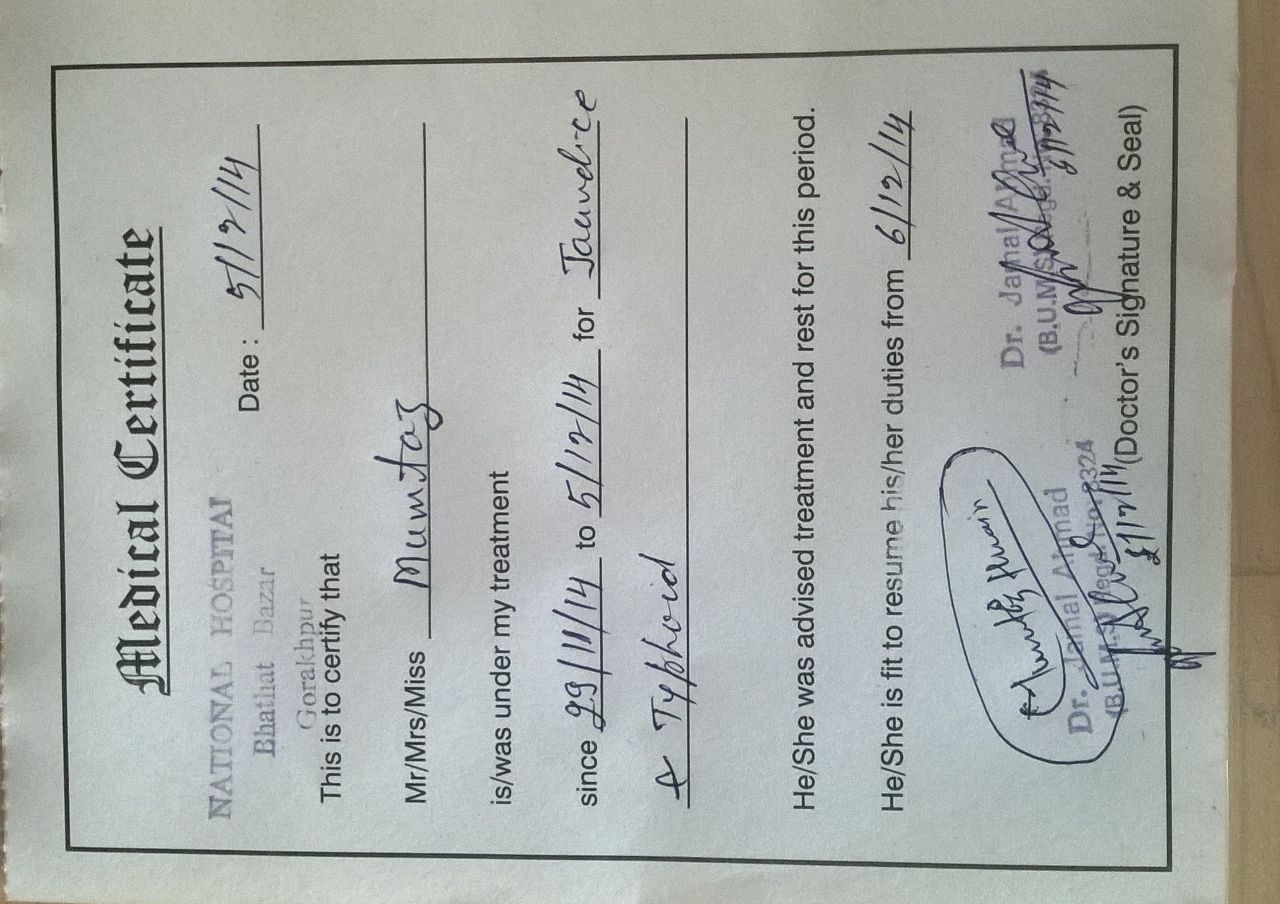 Medical Certificate
NATIONAL HOSPITAL
Bhathat Bazar
Gorakhpur
Date : 5/12/14
This is to certify that
Mr/Mrs/Miss Mumtaz
is/was under my treatment
since 29/11/14 to 5/12/14 for Jaundice
& Typhoid
He/She was advised treatment and rest for this period.
He/She is fit to resume his/her duties from 6/12/14
Dr. Jamal Ahmad
(B.U.M.S)
5/12/14
Dr. Jamal Ahmad
(B.U.M.S) Regd. No. 8324
5/12/14
(Doctor's Signature & Seal)